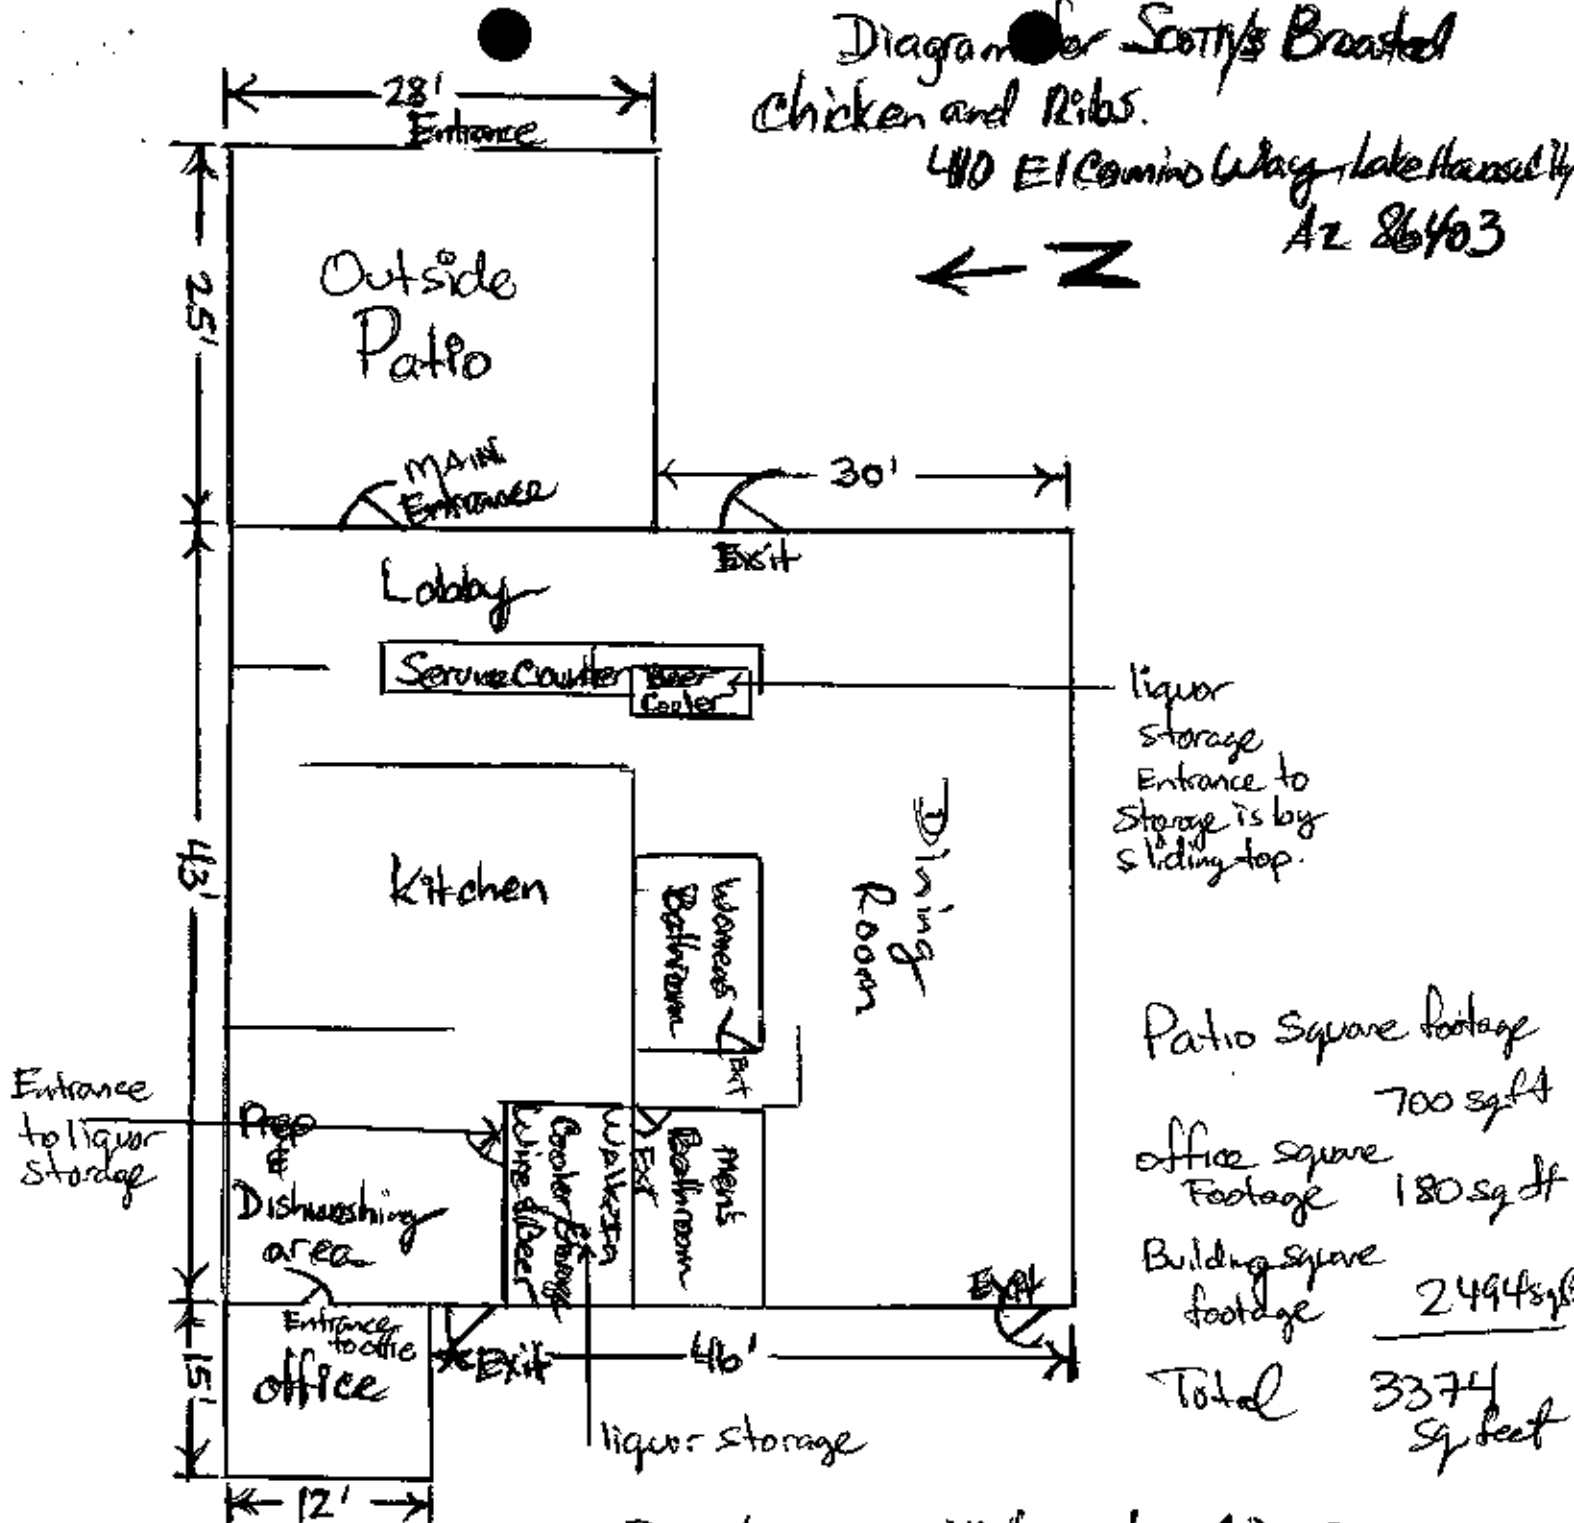 Diagram for Scotty's Broasted
Chicken and Ribs.
410 El Camino Way, Lake Havasu City
Az 86403
← N
28'
Entrance
25'
Outside
Patio
MAIN
Entrance
30'
Exit
Lobby
Service Counter
Beer
Cooler
liquor
storage
Entrance to
storage is by
sliding top.
43'
Kitchen
Womens
Bathroom
Exit
Dining
Room
Entrance
to liquor
storage
Prep
&
Dishwashing
area
Walk In
Cooler Storage
Wine & Beer
Exit
Mens
Bathroom
Exit
Entrance
to office
office
15'
Exit
46'
12'
liquor storage
Patio Square footage
700 sq ft
office square
Footage 180 sq ft
Building square
footage 2494 sq ft
Total 3374
sq feet